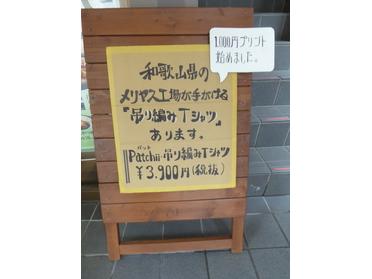 1.000円プリント
始めました。
和歌山県の
メリヤス工場が手がける
「吊り編みTシャツ」
あります。
パット
Patchii・吊り編みTシャツ
¥3.900円(税抜)